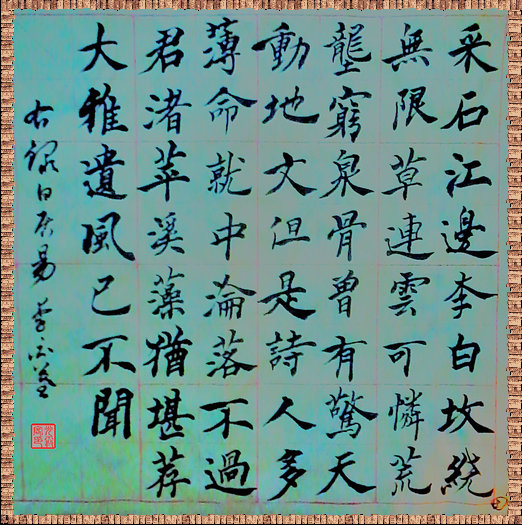 采石江邊李白坟繞
無限草連雲可憐荒
壟窮泉骨曾有驚天
動地文但是詩人多
薄命就中淪落不過
君渚苹溪藻猶堪荐
大雅遺風已不聞
右録白居易李白墓